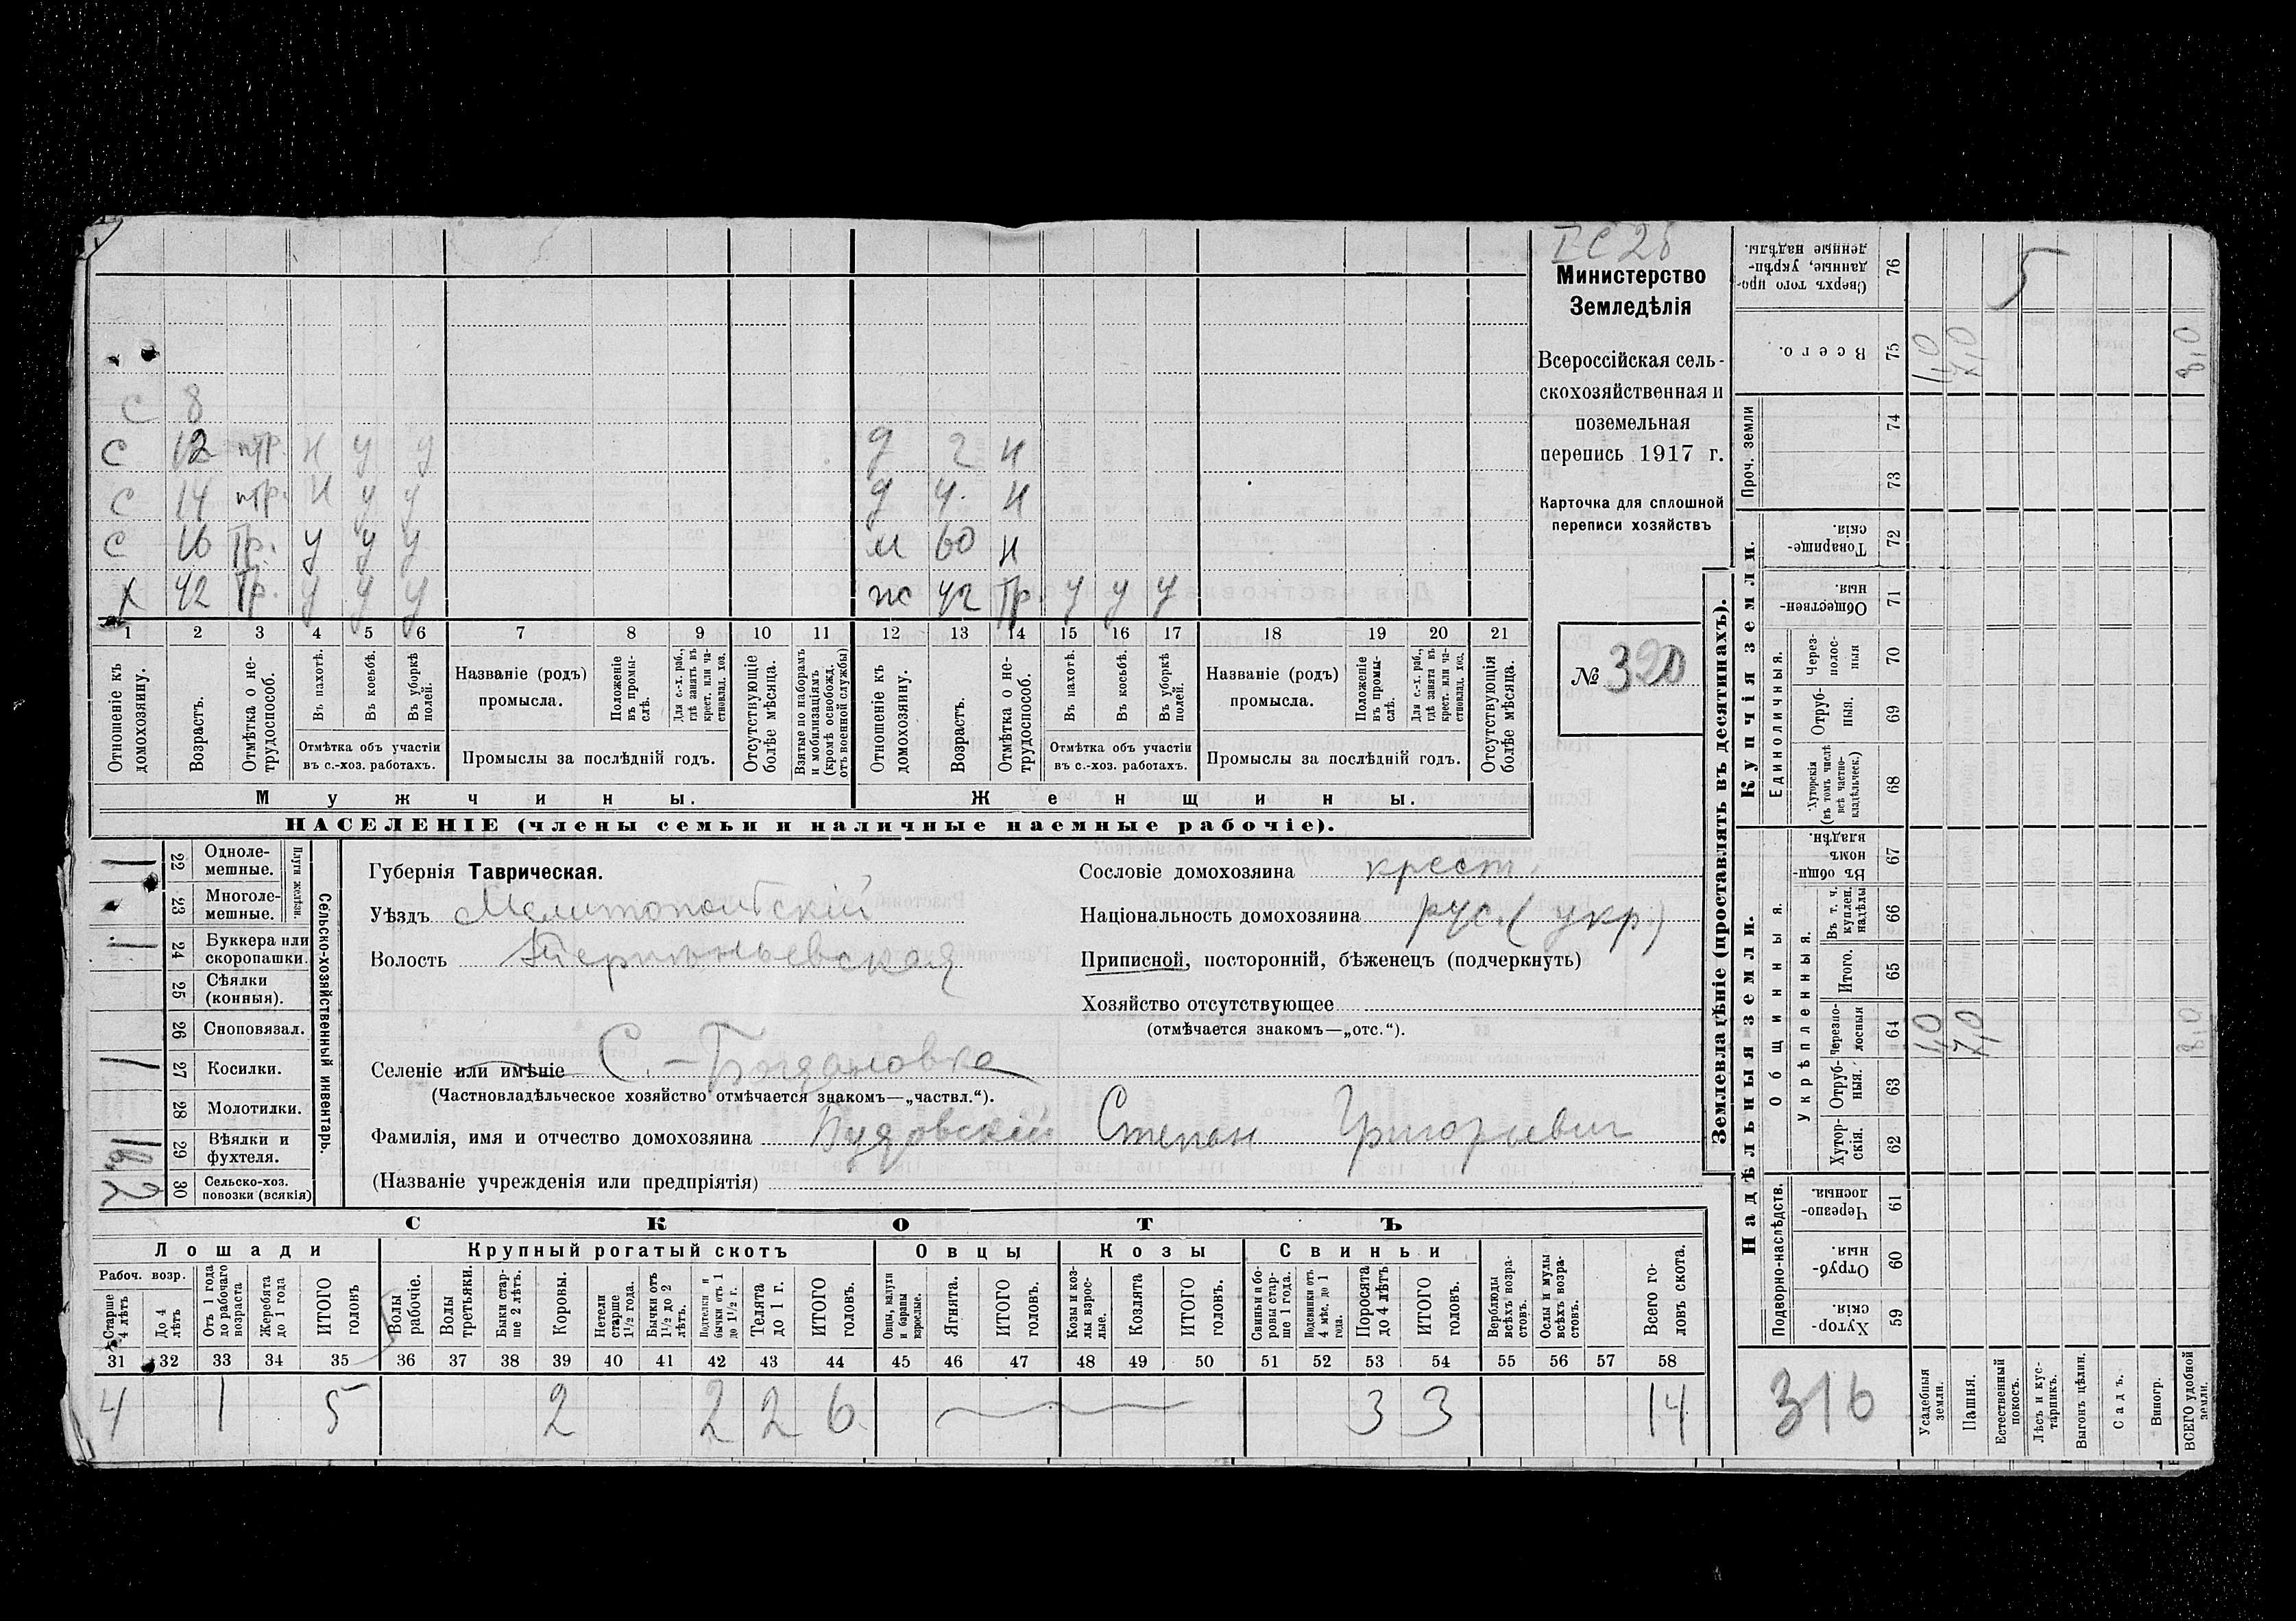 I С 28
Министерство
Земледѣлія
Всероссійская сель-
скохозяйственная и
поземельная
перепись 1917 г.
Карточка для сплошной
переписи хозяйствъ
№ 320
с 8
с 12 птр. н у у
с 14 птр. н у у
с 16 Тр. у у у
х 42 Тр. у у у
д 2 н
д 4 н
м 60 н
ж 42 Тр у у у
1 2 3 4 5 6 7 8 9 10 11 12 13 14 15 16 17 18 19 20 21
Отношеніе къ домохозяину.
Возрастъ.
Отмѣтка о не-трудоспособ.
Въ пахотѣ.
Въ косьбѣ.
Въ уборкѣ полей.
Отмѣтка объ участіи
въ с.-хоз. работахъ.
Названіе (родъ)
промысла.
Положеніе въ промы-слѣ.
Для с.-х. раб., гдѣ занятъ въ крест. или ча-стновлад. хоз.
Промыслы за послѣдній годъ.
Отсутствующіе болѣе мѣсяца.
Взятые по наборамъ и мобилизаціямъ (кромѣ освобожд. отъ военной службы)
Отношеніе къ домохозяину.
Возрастъ.
Отмѣтка о не-трудоспособ.
Въ пахотѣ.
Въ косьбѣ.
Въ уборкѣ полей.
Отмѣтка объ участіи
въ с.-хоз. работахъ.
Названіе (родъ)
промысла.
Положеніе въ промы-слѣ.
Для с.-х. раб., гдѣ занята въ крест. или ча-стновлад. хоз.
Промыслы за послѣдній годъ.
Отсутствующія болѣе мѣсяца.
Мужчины.
Женщины.
НАСЕЛЕНІЕ (члены семьи и наличные наемные рабочіе).
Сельско-хозяйственный инвентарь.
Плуги желѣзн.
1 22 Однолe-мешные.
23 Многоле-мешные.
1 24 Буккера или скоропашки.
25 Сѣялки (конныя).
26 Сноповязал.
1 27 Косилки.
28 Молотилки.
29 Вѣялки и фухтеля.
2 30 Сельско-хоз. повозки (всякія)
Губернія Таврическая.
Уѣздъ Мелитопольскій
Волость Терпѣньевская
Селеніе или имѣніе С. - Богдановка
(Частновладѣльческое хозяйство отмѣчается знакомъ—„частвл.“).
Фамилія, имя и отчество домохозяина Будовскій Степан Григорьевич
(Названіе учрежденія или предпріятія)
Сословіе домохозяина крест.
Національность домохозяина рус. (укр)
Приписной, посторонній, бѣженецъ (подчеркнуть)
Хозяйство отсутствующее
(отмѣчается знакомъ—„отс.“).
СКОТЪ
Лошади
Крупный рогатый скотъ
Овцы
Козы
Свиньи
Рабоч. возр.
Старше 4 лѣтъ
До 4 лѣтъ
Отъ 1 года до рабочаго возраста
Жеребята до 1 года
ИТОГО головъ
Волы рабочіе.
Волы третьяки.
Быки стар-ше 2 лѣтъ.
Коровы.
Нетели старше 1½ года.
Бычки отъ 1½ до 2 лѣтъ.
Подтелки и бычки отъ 1 до 1½ г.
Телята до 1 г.
ИТОГО головъ.
Овцы, валухи и бараны взрослые.
Ягнята.
ИТОГО головъ.
Козы и коз-лы взрос-лые.
Козлята
ИТОГО головъ.
Свиньи и бо-ровы стар-ше 1 года.
Подсвинки отъ 4 мѣс. до 1 года.
Поросята до 4 лѣтъ
ИТОГО головъ.
Верблюды всѣхъ возра-стовъ.
Ослы и мулы всѣхъ возра-стовъ.
Всего го-ловъ скота.
31 32 33 34 35 36 37 38 39 40 41 42 43 44 45 46 47 48 49 50 51 52 53 54 55 56 57 58
4 1 5 2 2 2 6 3 3 14
Землевладѣніе (проставлять въ десятинахъ).
Купчія земли.
Надѣльныя земли.
Сверхъ того про-данные, укрѣп-ленные надѣлы. 76 5
Всего. 75 1,0 7,0 8,0
Проч. земли
74
73
Товарище-скія. 72
Обществен-ныя. 71
Единоличныя.
Через-полос-ныя 70
Отруб-ныя. 69
Хуторскія (въ томъ числѣ всѣ частно-владѣльческ.) 68
Общинныя.
Въ общин-номъ владѣн. 67
Укрѣпленныя.
Въ т. ч. куплен. надѣлы 66
Итого. 65
Черезпо-лосныя 64 1,0 7,0 8,0
Отруб-ныя. 63
Хутор-скія. 62
Подворно-наслѣдств.
Черезпо-лосныя. 61
Отруб-ныя. 60
Хутор-скія. 59
316
Усадебныя земли.
Пашня.
Естественный покосъ.
Лѣсъ и кус-тарникъ.
Выгонъ цѣлин.
Садъ.
Виногр.
ВСЕГО удобной земли.